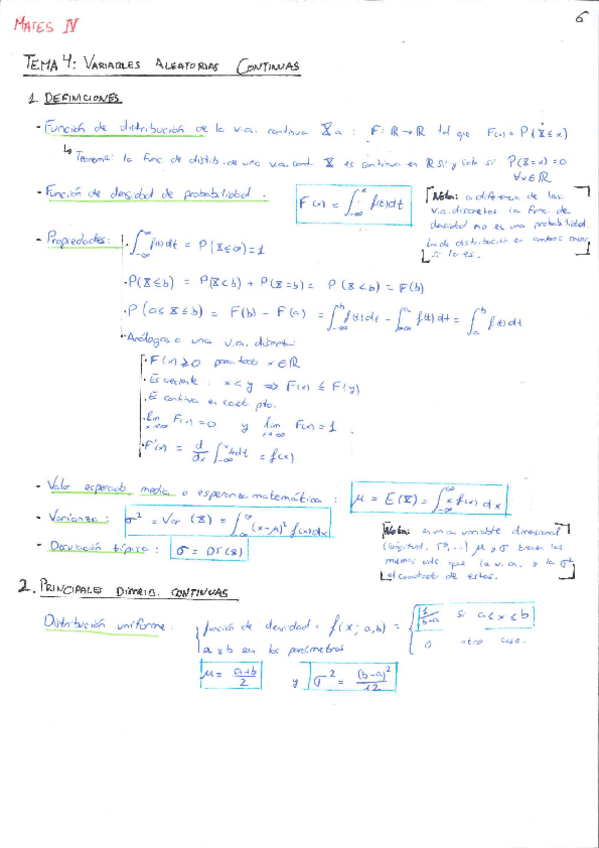 MATES IV
6
TEMA 4: VARIABLES ALEATORIAS CONTINUAS
1. DEFINICIONES
- Función de distribución de la v.a. continua X a : F: ℝ → ℝ tal que F(x) = P(X ≤ x)
↳ Teorema: la func. de distrib. de una v.a. cont. X es continua en ℝ si y solo si P(X=x)=0
∀x∈ℝ
- Función de densidad de probabilidad.
F(x) = ∫_{-∞}^{x} f(t)dt
Nota: a diferencia de las
v.a. discretas la func. de
densidad no es una probabilidad.
La de distribución en ambos
si lo es.
- Propiedades:
· ∫_{-∞}^{∞} f(t)dt = P(X≤∞)=1
· P(X≤b) = P(X<b) + P(X=b) = P(X<b) = F(b)
· P(a≤X≤b) = F(b) - F(a) = ∫_{-∞}^{b} f(t)dt - ∫_{-∞}^{a} f(t)dt = ∫_{a}^{b} f(t)dt
· Análogas a una v.a. discreta:
· F(x) ≥ 0 para todo x∈ℝ
· Es creciente : x<y ⇒ F(x) ≤ F(y)
· E continua en cada pto.
· lim F(x)=0 y lim F(x)=1.
· F'(x) = d/dx ∫_{-∞}^{x} f(t)dt = f(x)
- Valor esperado, media o esperanza matemática : μ = E(X) = ∫_{-∞}^{∞} x f(x) dx
- Varianza : σ² = Var (X) = ∫_{-∞}^{∞} (x-μ)² f(x)dx
- Desviación típica : σ = DT(X)
Nota: en una variable dimensional
(longitud, Tª,...) μ y σ tienen las
mismas uds que la v.a. y la σ²
el cuadrado de estas.
2. PRINCIPALES DISTRIB. CONTINUAS
Distribución uniforme : función de densidad. f(x; a,b) = { 1/(b-a) si a≤x≤b
0 otro caso.
a y b son los parámetros
μ = (a+b)/2 y σ² = (b-a)²/12